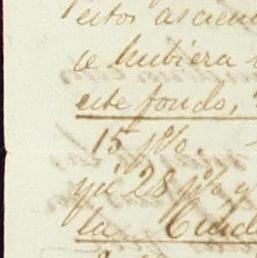 estos ascien
se hubiera
este fondo,
15 p%.
qe 28 p% y
la Ciud